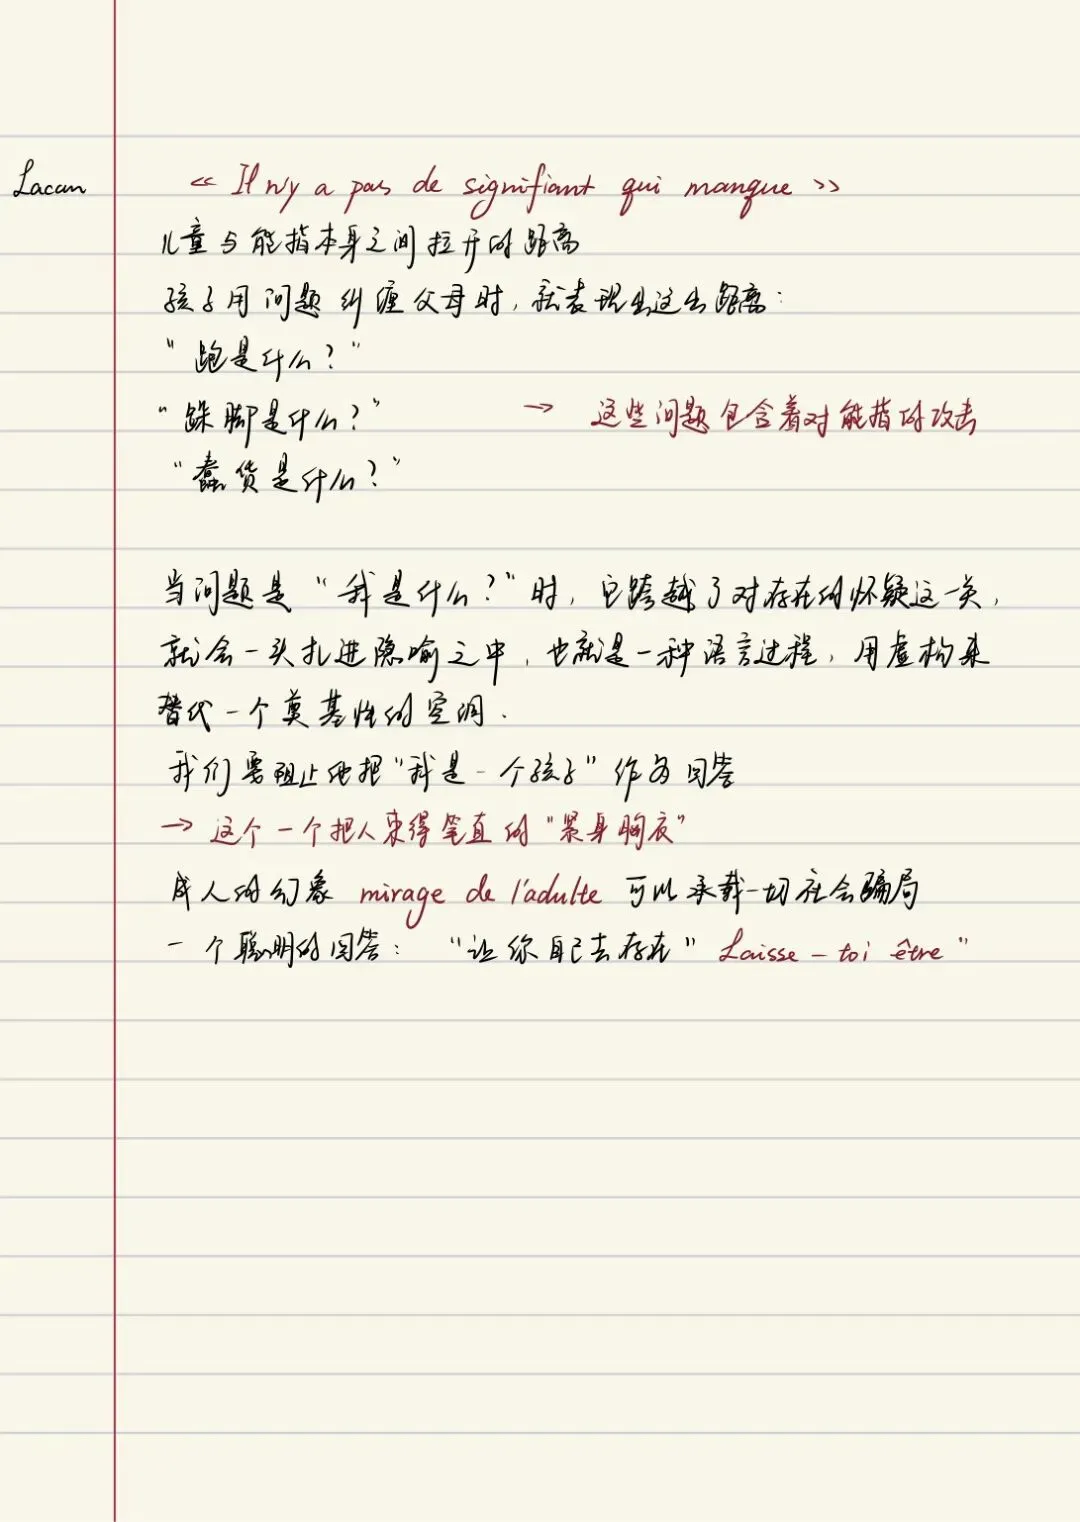 Lacan
« Il n'y a pas de signifiant qui manque »
儿童与能指本身之间拉开的距离
孩子用问题纠缠父母时，就表现出这出距离：
"跑是什么？"
"跺脚是什么？" → 这些问题包含着对能指的攻击
"蠢货是什么？"
当问题是"我是什么？"时，它跨越了对存在的怀疑这一关，
就会一头扎进隐喻之中，也就是一种语言过程，用虚构来
替代一个奠基性的空洞．
我们要阻止他把"我是一个孩子"作为回答
→ 这个一个把人束得笔直的"紧身胸衣"
成人的幻象 mirage de l'adulte 可以承载一切社会骗局
一个聪明的回答： "让你自己去存在" Laisse-toi être"